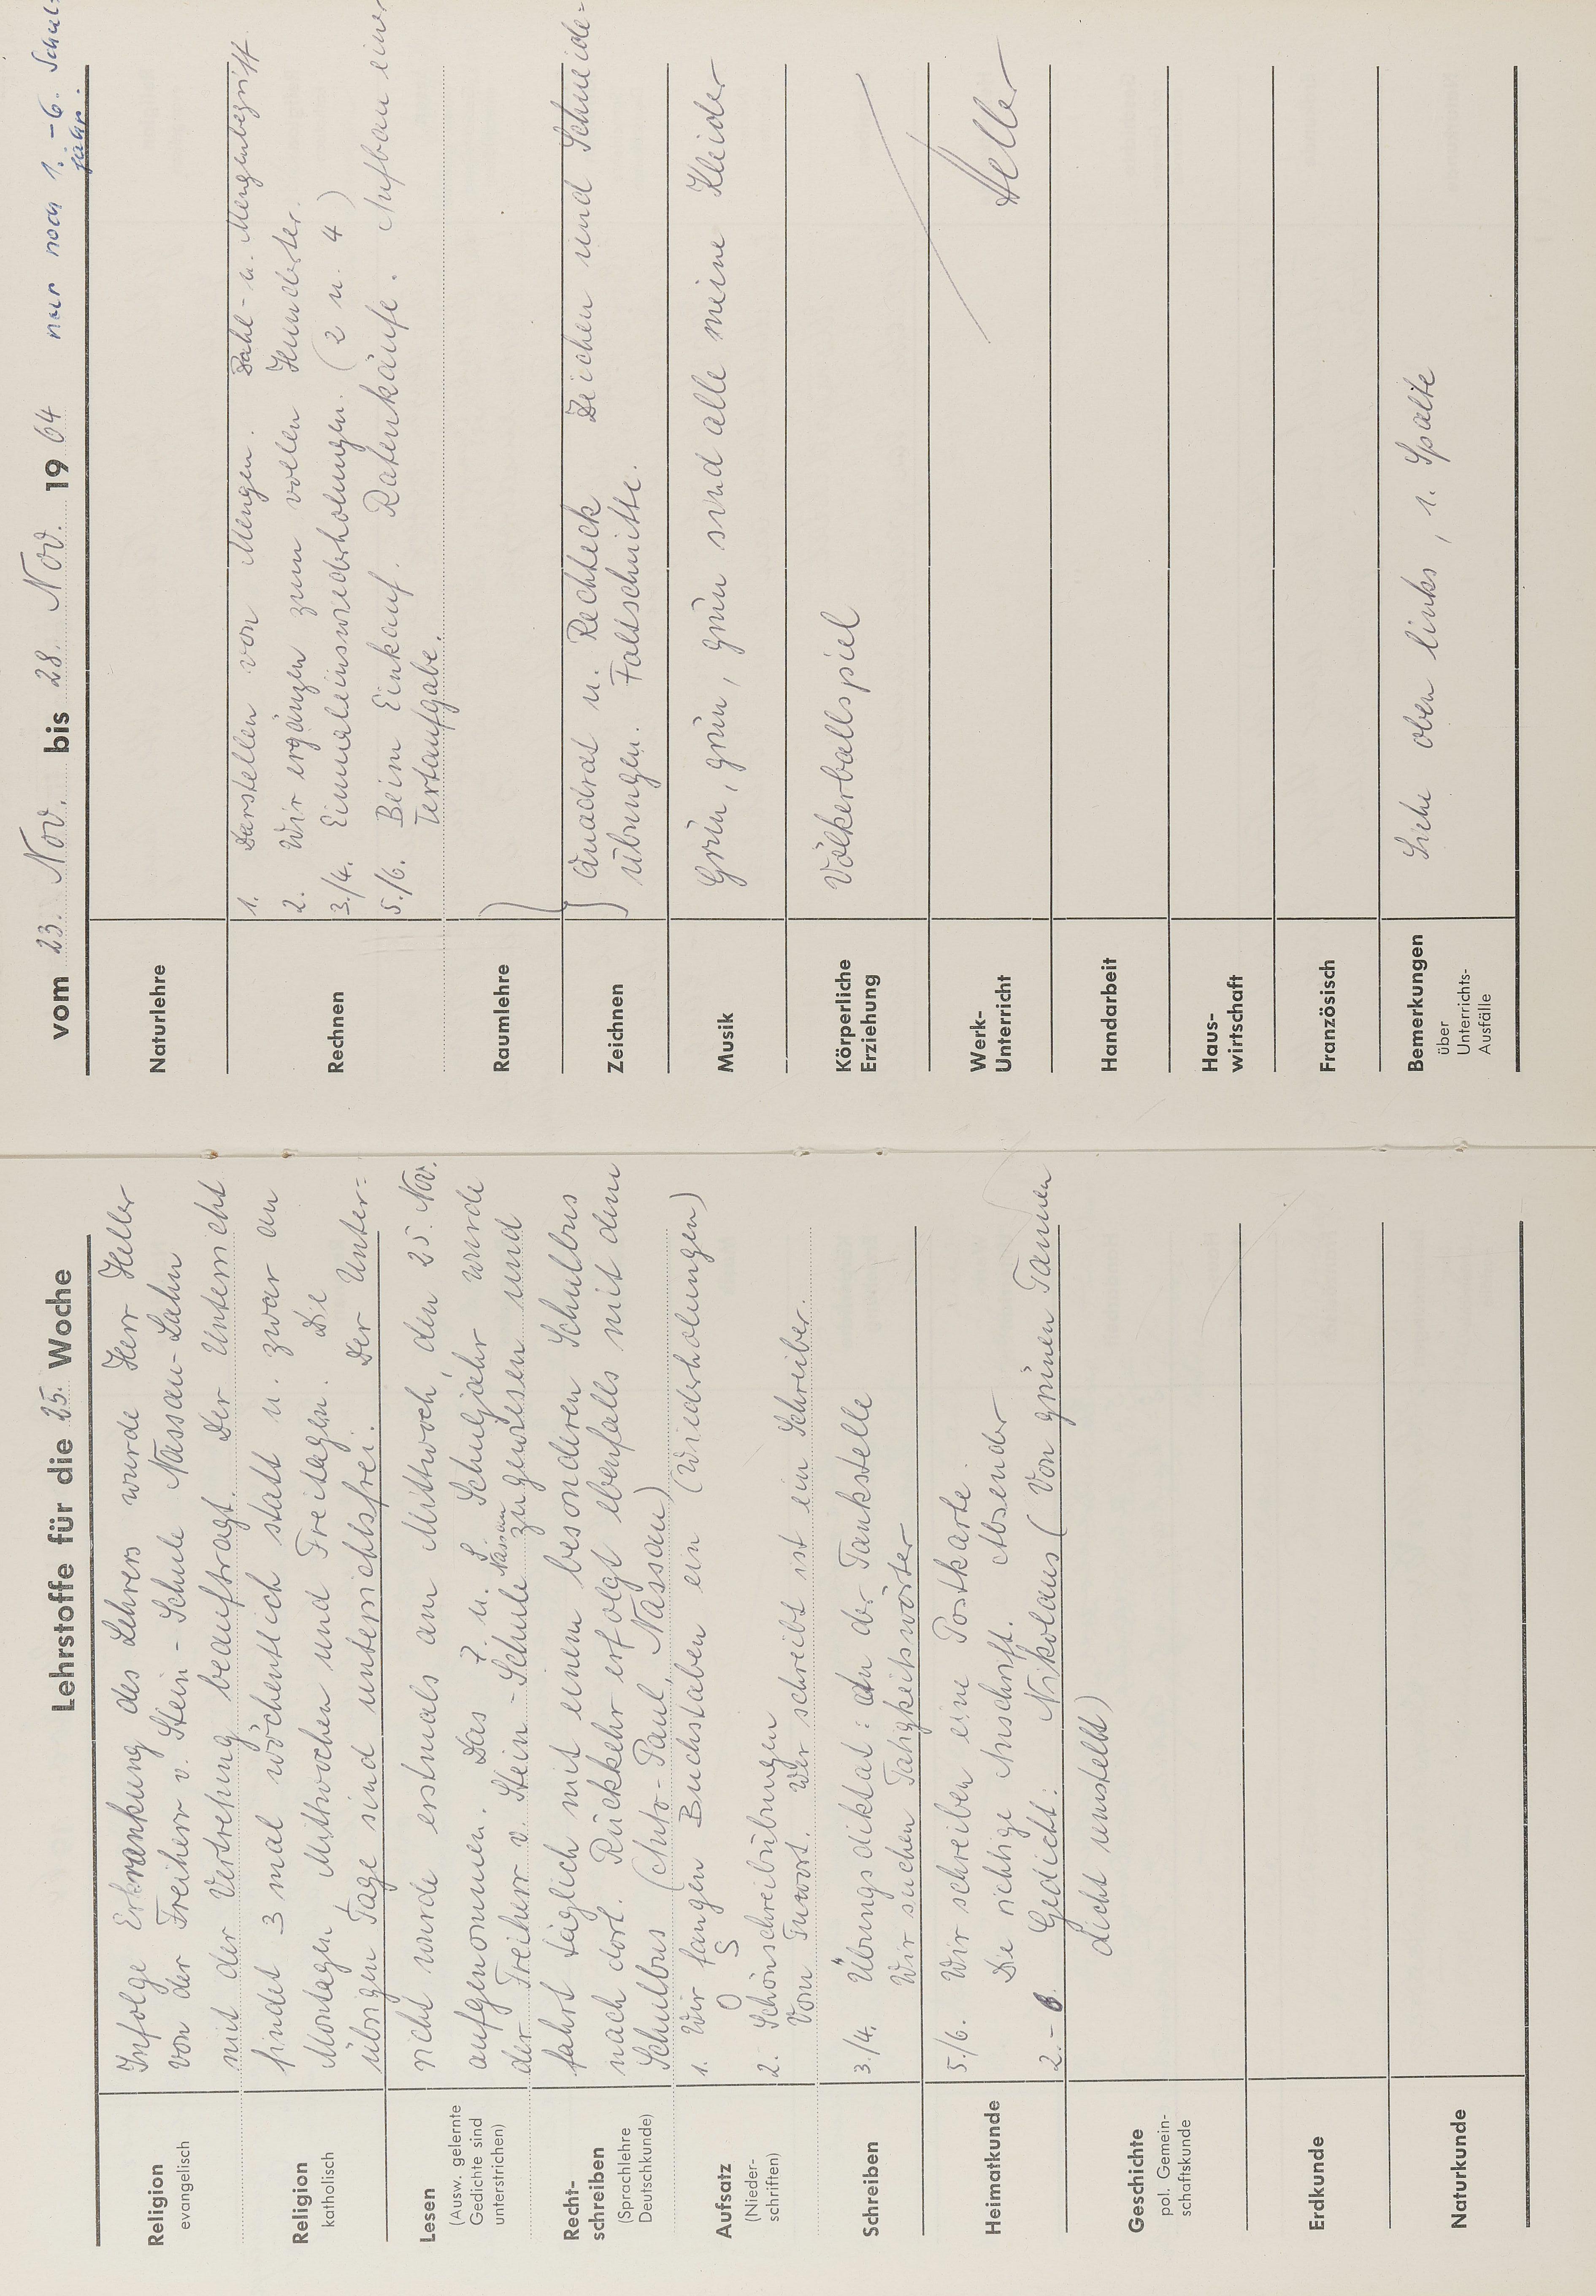 Lehrstoffe für die 25. Woche
Religion
evangelisch
Infolge Erkrankung des Lehrers wurde Herr Heller
von der Freiherr v. Stein-Schule Nassau-Lahn
mit der Vertretung beauftragt. Der Unterricht
Religion
katholisch
findet 3 mal wöchentlich statt u. zwar an
Montagen, Mittwochen und Freitagen. Die
übrigen Tage sind unterrichtsfrei. Der Unter=
Lesen
(Ausw. gelernte
Gedichte sind
unterstrichen)
richt wurde erstmals am Mittwoch, den 25. Nov.
aufgenommen. Das 7. u. 8. Schuljahr wurde
der Freiherr v. Stein-Schule Nassau zugewiesen und
Recht-
schreiben
(Sprachlehre
Deutschkunde)
fährt täglich mit einem besonderen Schulbus
nach dort. Rückkehr erfolgt ebenfalls mit dem
Schulbus (Auto-Paul, Nassau)
Aufsatz
(Nieder-
schriften)
1. Wir fangen Buchstaben ein (Wiederholungen)
O S
2. Schönschreibübungen
Vom Tuwort. Wer schreibt ist ein Schreiber.
Schreiben
3./4. Übungsdiktat: An der Tankstelle
Wir suchen Tätigkeitswörter
Heimatkunde
5./6. Wir schreiben eine Postkarte.
Die richtige Anschrift. Absender
2.-6. Gedicht: Nikolaus (Von grünen Tannen
Geschichte
pol. Gemein-
schaftskunde
dicht umstellt)
Erdkunde
Naturkunde
vom 23. Nov. bis 28. Nov. 1964 nur noch 1.-6. Schul-
jahr.
Naturlehre
Rechnen
1. Darstellen von Mengen. Zahl- u. Mengenbegriff
2. Wir ergänzen zum vollen Hunderter.
3./4. Einmaleinswiederholungen. (2 u. 4)
5./6. Beim Einkauf. Ratenkäufe. Aufbau einer
Textaufgabe.
Raumlehre
Zeichnen
Quadrat u. Rechteck Zeichen und Schneide-
übungen. Faltschnitte.
Musik
Grün, grün, grün sind alle meine Kleider
Körperliche
Erziehung
Völkerballspiel
Werk-
Unterricht
Heller
Handarbeit
Haus-
wirtschaft
Französisch
Bemerkungen
über
Unterrichts-
Ausfälle
Siehe oben links, 1. Spalte